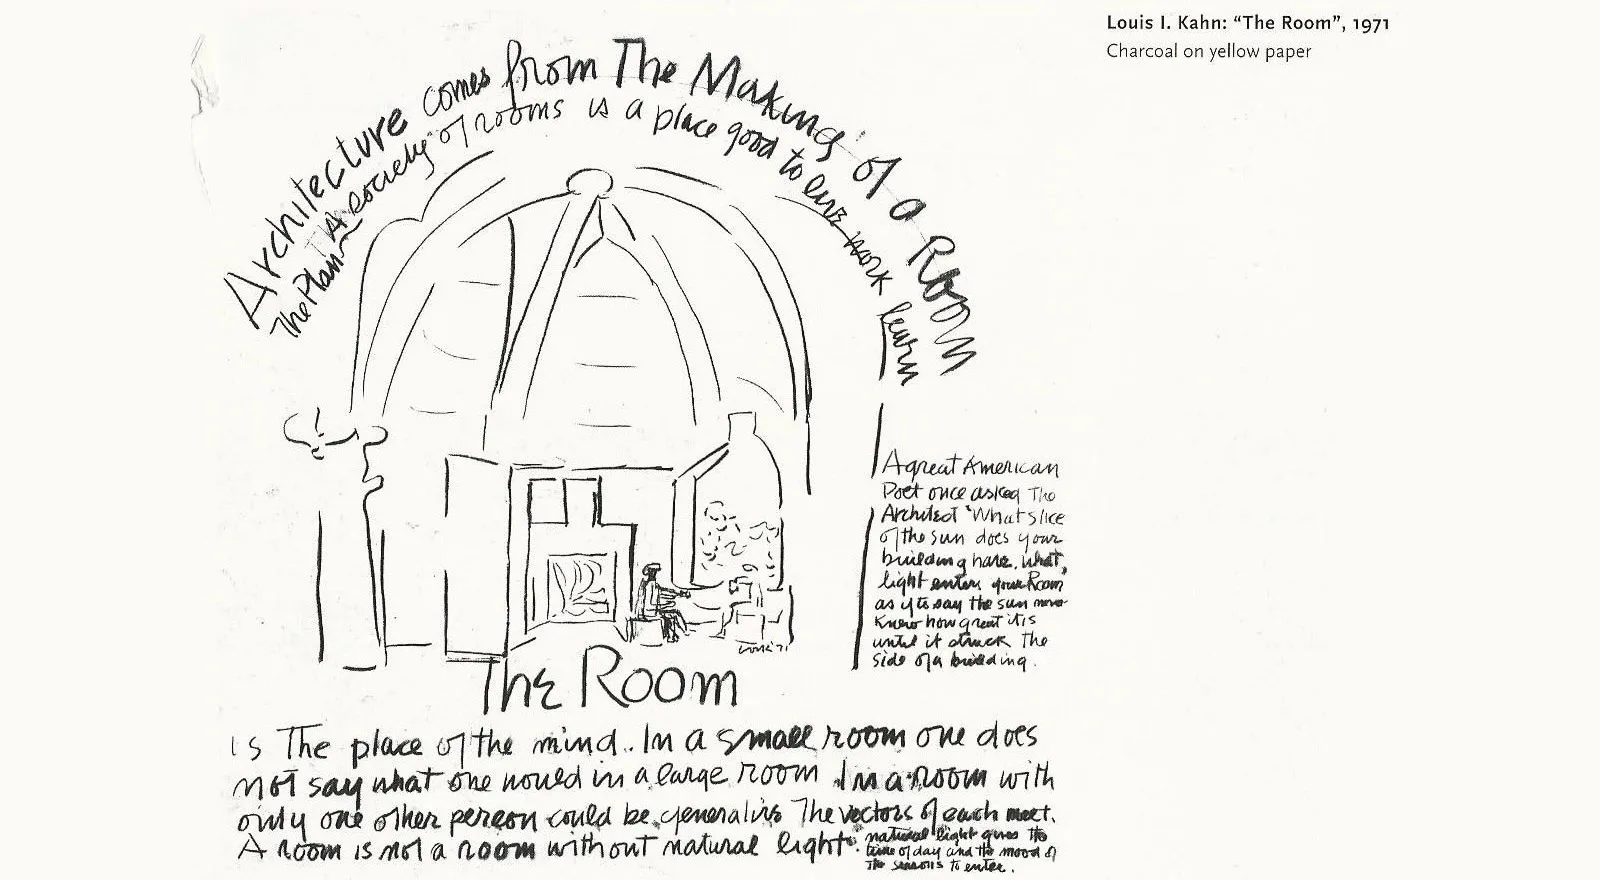 Louis I. Kahn: “The Room”, 1971
Charcoal on yellow paper
Architecture comes from The Making of a Room
The Plan A society of rooms is a place good to live work learn
A great American
Poet once asked The
Architect 'What slice
of the sun does your
building have. What
light enters your Room
as if to say the sun never
knew how great it is
until it struck the
side of a building.
The Room
is The place of the mind. In a small room one does
not say what one would in a large room In a room with
only one other person could be generative The vectors of each meet.
A room is not a room without natural light.
natural light gives the
time of day and the mood of
The seasons to enter.